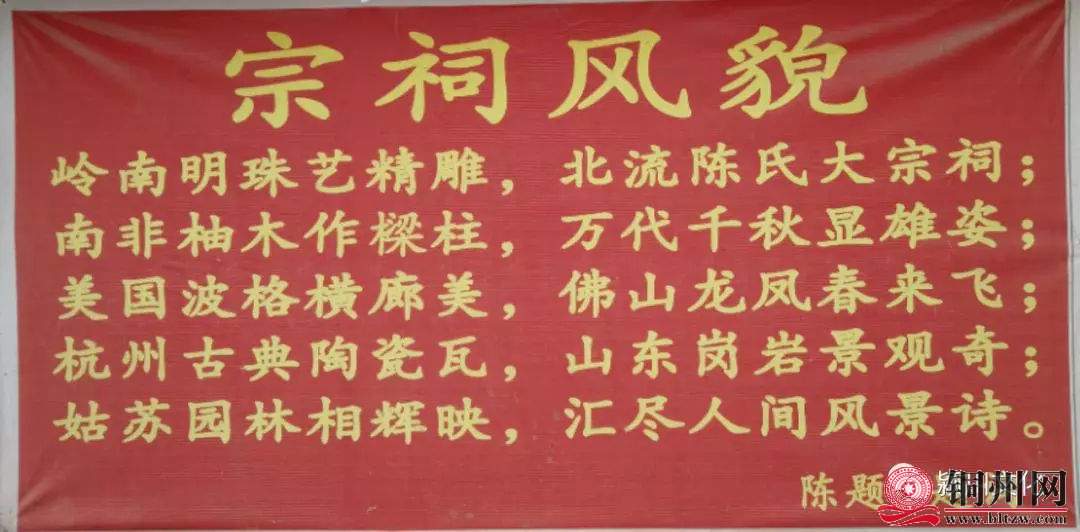 宗祠风貌
岭南明珠艺精雕，北流陈氏大宗祠；
南非柚木作樑柱，万代千秋显雄姿；
美国波格横廊美，佛山龙凤春来飞；
杭州古典陶瓷瓦，山东岗岩景观奇；
姑苏园林相辉映，汇尽人间风景诗。
陈题
铜州网
www.bltzw.com